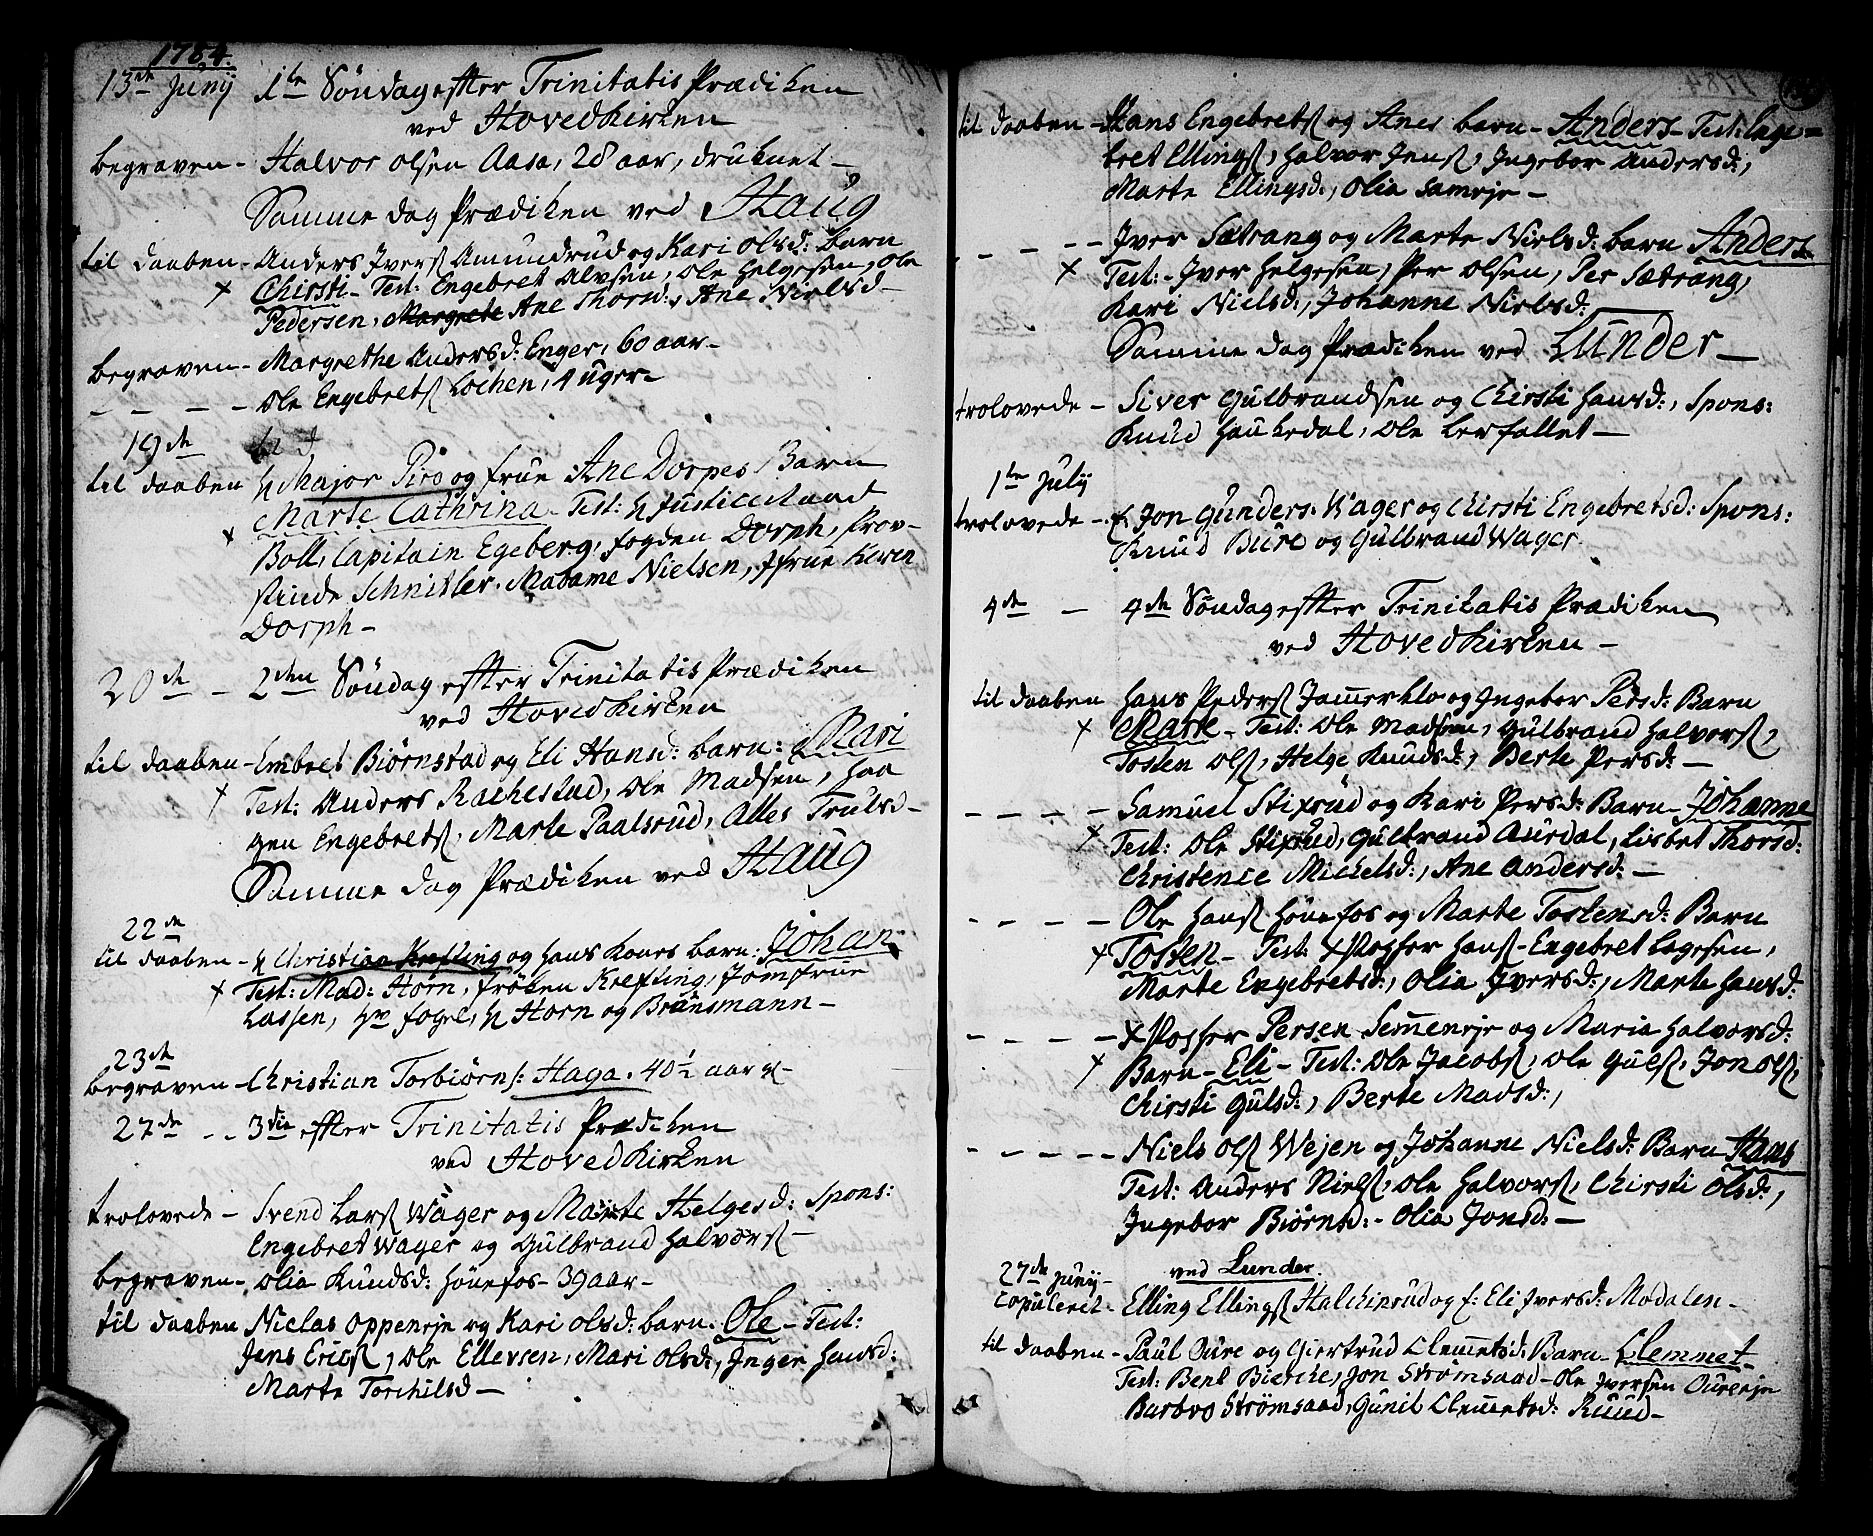 1784.
13de Junij 1te Søndag effter Trinitatis Prædiken
ved Hovedkirken
begraven - Halvor olsen Aasa, 28 aar, druknet -
Samme dag Prædiken ved Haug
til daaben - Anders Ivers: Amundrud og Kari olsd: barn
x Chirsti - Test: Engebret Alvsen, Ole Helgesen, Ole
Pedersen, Margrete Ane Thorsd:, Ane Nielsd -
begraven - Margrethe Andersd: Enger, 60 aar -
- - - - Ole Engebrets: Lochen, 4 uger -
19de
til daaben H Major Piro og frue Ane Dorpes Barn
x Marte Cathrina - Test: H Justice Raad
Boll, Capitain Egeberg, fogden Dorph, Prov-
stinde Schnitler. Madame Nielsen, Jfrue Karen
Dorph -
20de - 2den Søndag effter Trinitatis Prædiken
ved Hovedkirken
til daaben - Embret Biørnstad og Eli Hansd: barn: Mari
x Test: Anders Rachestad, Ole Madsen, Haa
gen Engebrets:, Marte Paalsrud, Alles Trulsd -
Samme dag Prædiken ved Haug
22de
til daaben - H Christian Krefting og hans Kones barn: Johan
x Test: Mad: Horn, frøken Krefting, Jomfrue
Lassen, Hr fogel, H Horn og Brünsmann -
23de
begraven - Christian Torbiørns: Haga. 40½ aar
27de - - 3die effter Trinitatis Prædiken
ved Hovedkirken
trolovede - Svend Lars: Wager og Marte Helgesd: Spons:
Engebret Wager og Gulbrand Halvors: -
begraven - Olia Knudsd: Hønefos - 39 aar -
til daaben Niclas Oppeneje og Kari olsd: barn. Ole - Test:
Jens Erics:, Ole Ellevsen, Mari Olsd:, Inger Hansd:
Marte Torchilsd -
1784.
til daaben - Hans Engebrets: og Anes barn - Anders - Test: Enge-
bret Ellings:, Halvor Jens:, Ingebor Andersd:,
Marte Ellingsd:, Olia Sameje -
- - - - Iver Sætrang og Marte Nielsd: barn Anders
x Test: - Iver Helgesen, Per Olsen, Per Sætrang,
Kari Nielsd:, Johanne Nielsd:
Samme dag Prædiken ved Lunder -
trolovede - Siver Gulbrandsen og Chirsti Hansd:, Spons:
Knud Haukedal, Ole Lerfallet -
1te Julij
trolovede - f: Jon Gunders: Wager og Chirsti Engebretsd: Spons:
Knud Bure og Gulbrand Wager
4de - 4de Søndag effter Trinitatis Prædiken
ved Hovedkirken -
til daaben Hans Peders: Jamerklo og Ingebor Pedsd: Barn
x Marte - Test: Ole Madsen, Gulbrand Halvors:,
Tosten Ols:, Helge Knudsd:, Berte Persd: -
- - - - Samuel Stixrud og Kari Persd: Barn - Johanne
x Test: Ole Stixrud, Gulbrand Aurdal, Lisbet Thorsd:
Christence Michelsd:, Ane Andersd: -
- - - - Ole Hans: Hønefos og Marte Tostensd: Barn
x Tosten - Test: Xstoffer Hans: - Engebret Lagesen,
Marte Engebretsd:, Olia Iversd:, Marte Hansd:
- - - - Xstoffer Persen Semeneje og Maria Halvorsd:
x Barn - Eli - Test: Ole Jacobs:, Ole Guls:, Jon Ols:,
Chirsti Gulsd:, Berte Madsd:,
- - - - Niels Ols: Wejen og Johanne Nielsd: Barn Hans
Test: Anders Niels:, Ole Halvors:, Chirsti Olsd:,
Ingebor Biørnsd: - Olia Jonsd: -
27de Junij - ved Lunder.
Copuleret - Elling Ellings: Halchinrud og f: Eli Iversd: Modalen -
til daaben - Paul Oure og Giertrud Clemetsd: Barn - Clemmet -
Test: Bent Bierche, Jon Strømsaad - Ole Iversen Oureeje
Barbro Strømsaad, Gunil Clemetsd: Ruud -